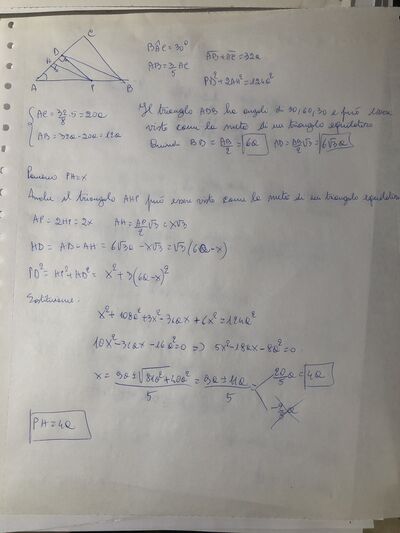 C
D
H
x
A
P
B
BÂC = 30°
AB = 3/5 AC
AB + AC = 32a
PD² + 2AH² = 124a²
{ AC = 32a/8 · 5 = 20a
AB = 32a - 20a = 12a
Il triangolo ADB ha angoli di 30, 60, 90 e può essere
visto come la metà di un triangolo equilatero
Quindi BD = AB/2 = 6a AD = AB/2 √3 = 6√3a
Poniamo PH = x
Anche il triangolo AHP può essere visto come la metà di un triangolo equilatero
AP = 2HP = 2x AH = AP/2 √3 = x√3
HD = AD - AH = 6√3a - x√3 = √3(6a - x)
PD² = HP² + HD² = x² + 3(6a - x)²
Sostituiamo:
x² + 108a² + 3x² - 36ax + 6x² = 124a²
10x² - 36ax - 16a² = 0 => 5x² - 18ax - 8a² = 0
x = 9a ± √81a² + 40a² / 5 = 9a ± 11a / 5
20/5 a = 4a
-2/5 a
PH = 4a